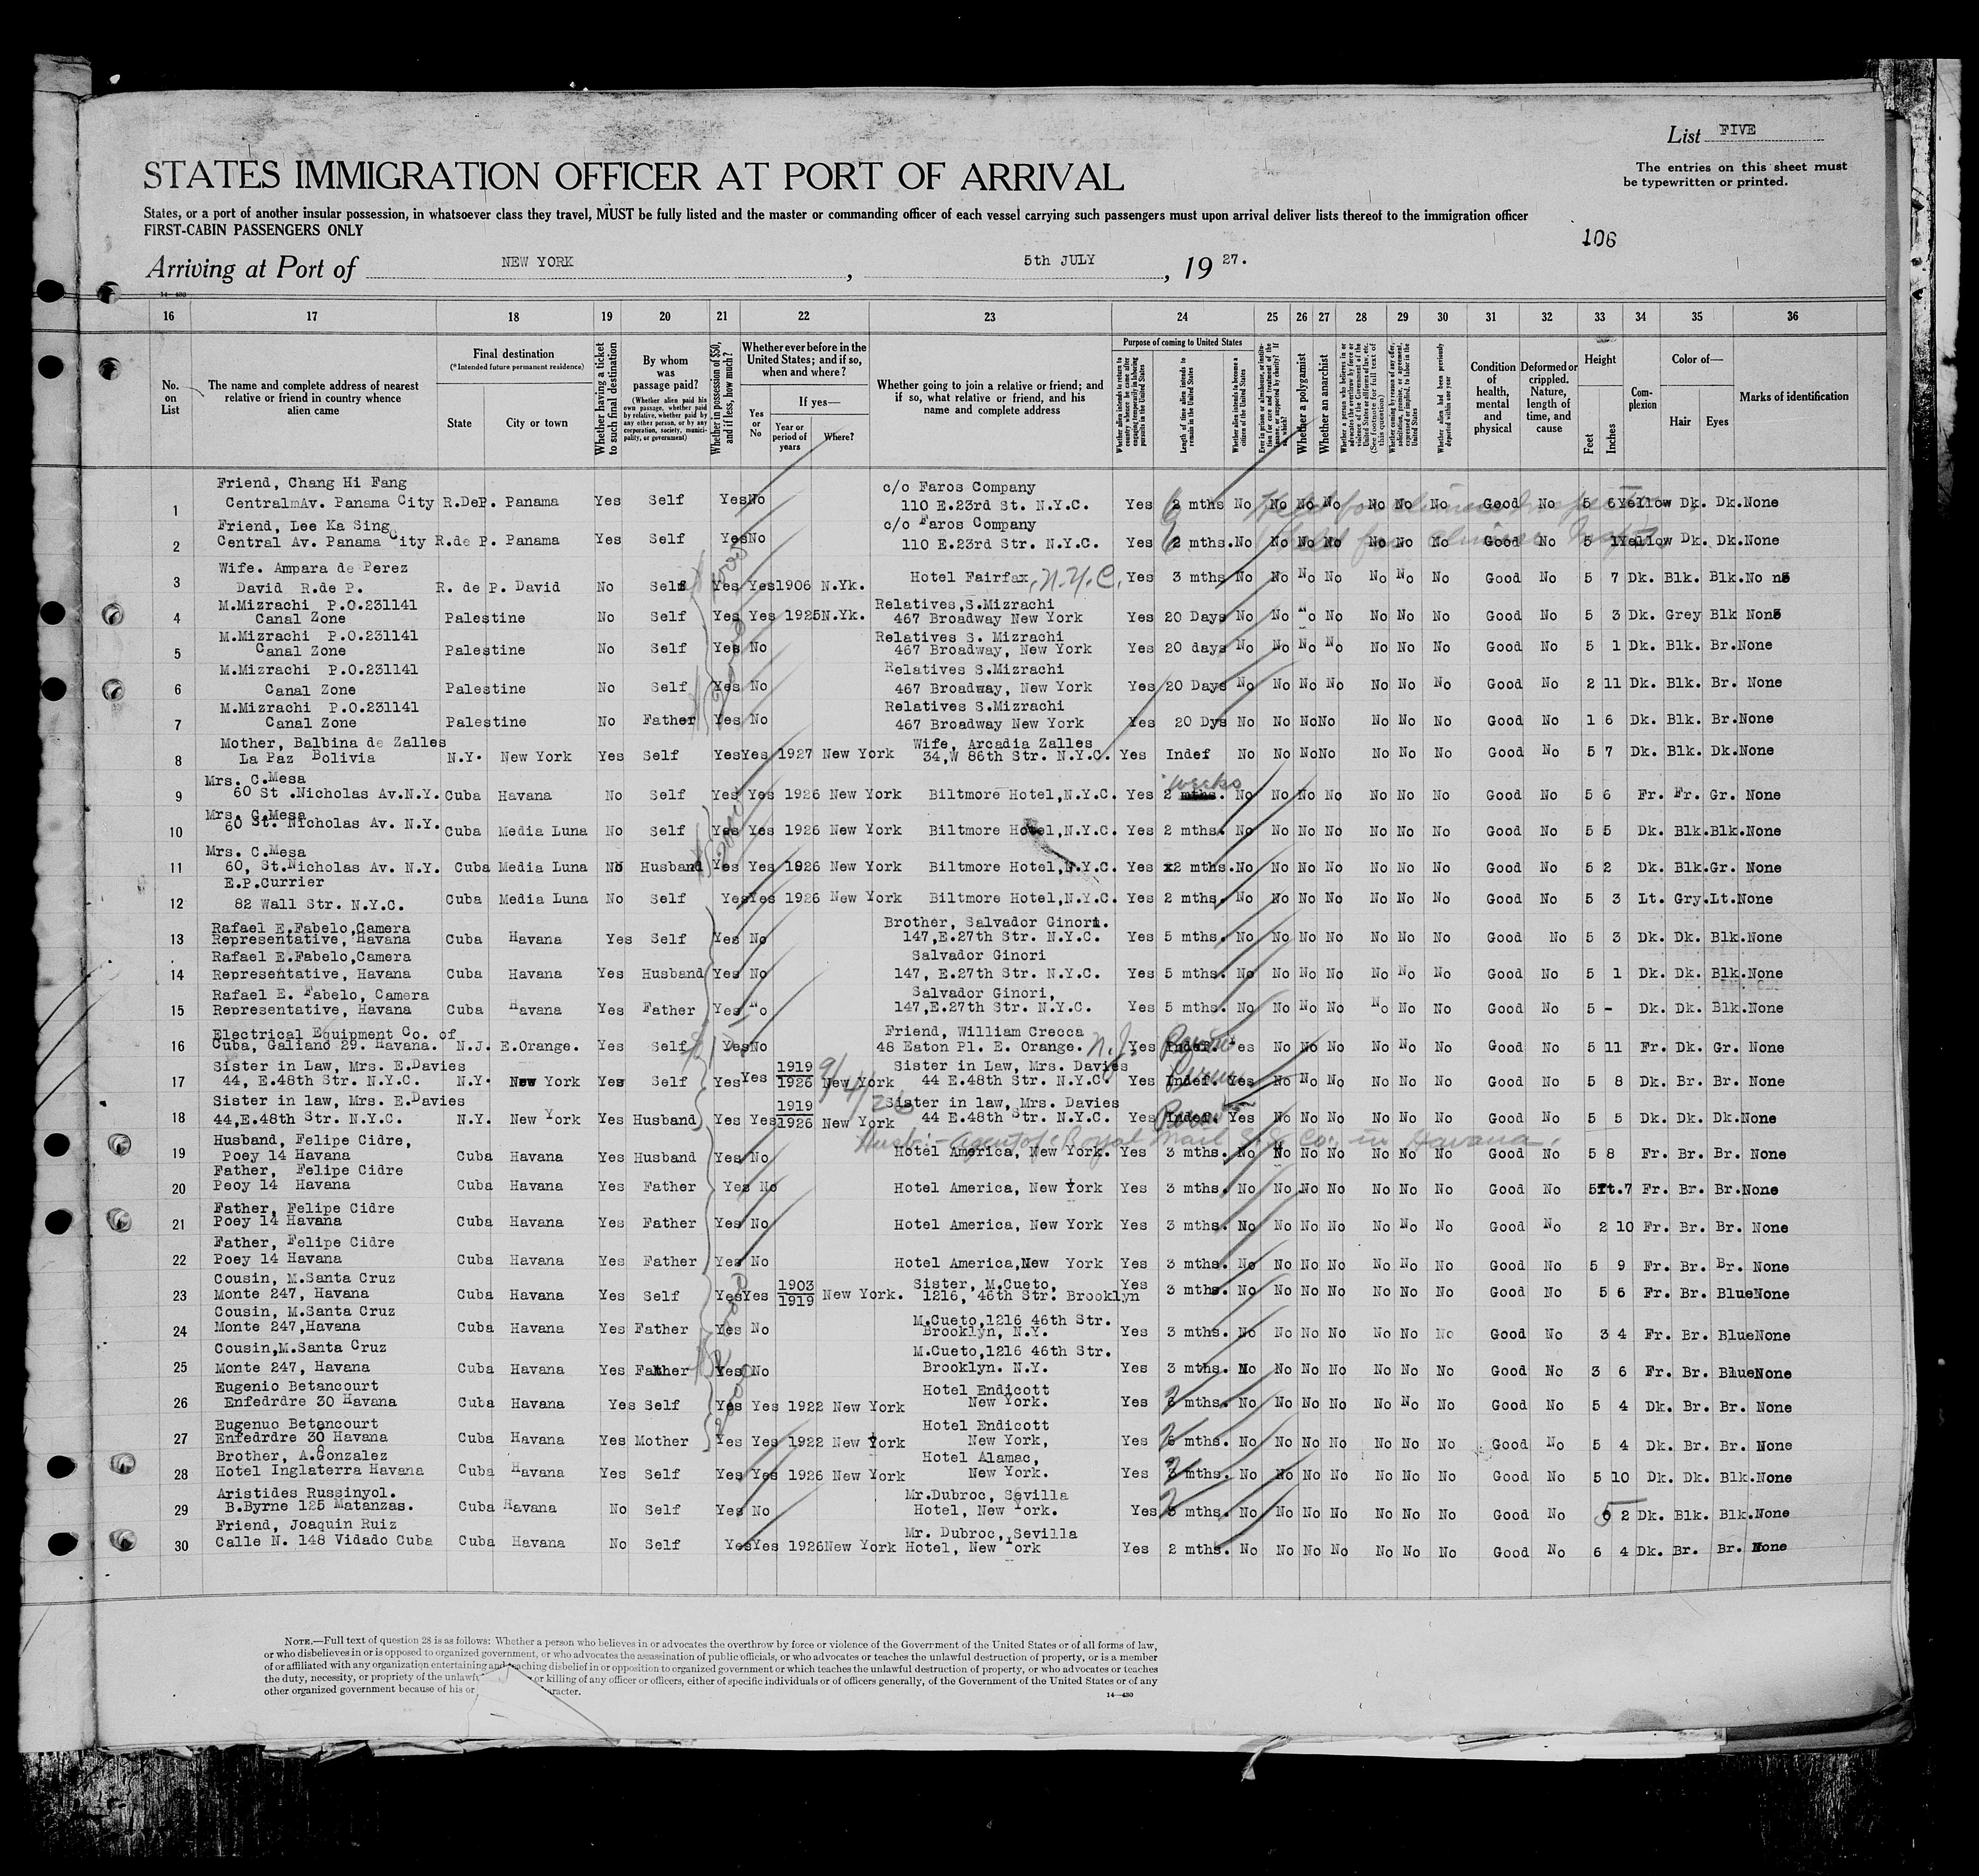 List FIVE
The entries on this sheet must
be typewritten or printed.
STATES IMMIGRATION OFFICER AT PORT OF ARRIVAL
States, or a port of another insular possession, in whatsoever class they travel, MUST be fully listed and the master or commanding officer of each vessel carrying such passengers must upon arrival deliver lists thereof to the immigration officer
FIRST-CABIN PASSENGERS ONLY
106
Arriving at Port of NEW YORK , 5th JULY , 19 27.
14-430
16 17 18 19 20 21 22 23 24 25 26 27 28 29 30 31 32 33 34 35 36
No. on List
The name and complete address of nearest relative or friend in country whence alien came
Final destination (*Intended future permanent residence)
State City or town
Whether having a ticket to such final destination
By whom was passage paid?
(Whether alien paid his own passage, whether paid by relative, whether paid by any other person, or by any corporation, society, municipality, or government)
Whether in possession of $50, and if less, how much?
Whether ever before in the United States; and if so, when and where?
Yes or No
If yes—
Year or period of years Where?
Whether going to join a relative or friend; and if so, what relative or friend, and his name and complete address
Purpose of coming to United States
Whether alien intends to return to country whence he came after engaging temporarily in laboring pursuits in the United States
Length of time alien intends to remain in the United States
Whether alien intends to become a citizen of the United States
Whether a polygamist
Whether an anarchist
Whether alien had been previously deported within one year
Condition of health, mental and physical
Deformed or crippled. Nature, length of time, and cause
Height
Feet Inches
Complexion
Color of—
Hair Eyes
Marks of identification
Friend, Chang Hi Fang c/o Faros Company
1 CentralmAv. Panama City R.DeP. Panama Yes Self Yes No 110 E.23rd St. N.Y.C. Yes 6 2 mths No No No No No No No Good No 5 6 Yellow Dk. Dk. None
Friend, Lee Ka Sing c/o Faros Company
2 Central Av. Panama City R.de P. Panama Yes Self Yes No 110 E.23rd Str. N.Y.C. Yes 6 2 mths. No No No No No No No Good No 5 1 Yellow Dk. Dk. None
Wife. Ampara de Perez
3 David R.de P. R. de P. David No Self Yes Yes 1906 N.Yk. Hotel Fairfax, N.Y.C. Yes 3 mths No No No No No No No Good No 5 7 Dk. Blk. Blk. None
M.Mizrachi P.O.231141 Relatives,S.Mizrachi
4 Canal Zone Palestine No Self Yes Yes 1925 N.Yk. 467 Broadway New York Yes 20 Days No No No No No No No Good No 5 3 Dk. Grey Blk None
M.Mizrachi P.O.231141 Relatives S. Mizrachi
5 Canal Zone Palestine No Self Yes No 467 Broadway, New York Yes 20 days No No No No No No No Good No 5 1 Dk. Blk. Br. None
M.Mizrachi P.O.231141 Relatives S.Mizrachi
6 Canal Zone Palestine No Self Yes No 467 Broadway, New York Yes 20 Days No No No No No No No Good No 2 11 Dk. Blk. Br. None
M.Mizrachi P.O.231141 Relatives S.Mizrachi
7 Canal Zone Palestine No Father Yes No 467 Broadway New York Yes 20 Dys No No No No No No No Good No 1 6 Dk. Blk. Br. None
Mother, Balbina de Zalles Wife, Arcadia Zalles
8 La Paz Bolivia N.Y. New York Yes Self Yes Yes 1927 New York 34,W 86th Str. N.Y.C. Yes Indef No No No No No No No Good No 5 7 Dk. Blk. Dk. None
Mrs. C.Mesa weeks
9 60 St .Nicholas Av.N.Y. Cuba Havana No Self Yes Yes 1926 New York Biltmore Hotel,N.Y.C. Yes 2 mths. No No No No No No No Good No 5 6 Fr. Fr. Gr. None
Mrs. C.Mesa
10 60 St. Nicholas Av. N.Y. Cuba Media Luna No Self Yes Yes 1926 New York Biltmore Hotel,N.Y.C. Yes 2 mths. No No No No No No No Good No 5 5 Dk. Blk. Blk. None
Mrs. C.Mesa
11 60, St.Nicholas Av. N.Y. Cuba Media Luna No Husband Yes Yes 1926 New York Biltmore Hotel,N.Y.C. Yes x2 mths. No No No No No No No Good No 5 2 Dk. Blk. Gr. None
E.P.Currier
12 82 Wall Str. N.Y.C. Cuba Media Luna No Self Yes Yes 1926 New York Biltmore Hotel,N.Y.C. Yes 2 mths. No No No No No No No Good No 5 3 Lt. Gry. Lt. None
Rafael E.Fabelo,Camera Brother, Salvador Ginori.
13 Representative, Havana Cuba Havana Yes Self Yes No 147,E.27th Str. N.Y.C. Yes 5 mths. No No No No No No No Good No 5 3 Dk. Dk. Blk. None
Rafael E.Fabelo,Camera Salvador Ginori
14 Representative, Havana Cuba Havana Yes Husband Yes No 147, E.27th Str. N.Y.C. Yes 5 mths. No No No No No No No Good No 5 1 Dk. Dk. Blk. None
Rafael E. Fabelo, Camera Salvador Ginori,
15 Representative, Havana Cuba Havana Yes Father Yes No 147,E.27th Str. N.Y.C. Yes 5 mths. No No No No No No No Good No 5 - Dk. Dk. Blk. None
Electrical Equipment Co. of Friend, William Crecca
16 Cuba, Galiano 29. Havana. N.J. E.Orange. Yes Self Yes No 48 Eaton Pl. E. Orange. N.J. Yes Indef. Yes No No No No No No Good No 5 11 Fr. Dk. Gr. None
Sister in Law, Mrs. E.Davies 1919 Sister in Law, Mrs. Davies
17 44, E.48th Str. N.Y.C. N.Y. New York Yes Self Yes Yes 1926 New York 44 E.48th Str. N.Y.C. Yes Indef. Yes No No No No No No Good No 5 8 Dk. Br. Br. None
Sister in law, Mrs. E.Davies 1919 Sister in law, Mrs. Davies
18 44,E.48th Str. N.Y.C. N.Y. New York Yes Husband Yes Yes 1926 New York 44 E.48th Str. N.Y.C. Yes Indef. Yes No No No No No No Good No 5 5 Dk. Dk. Dk. None
Husb:- Agent of Royal Mail S.S. Co. in Havana.
Husband, Felipe Cidre,
19 Poey 14 Havana Cuba Havana Yes Husband Yes No Hotel America, New York. Yes 3 mths. No No No No No No No Good No 5 8 Fr. Br. Br. None
Father, Felipe Cidre
20 Peoy 14 Havana Cuba Havana Yes Father Yes No Hotel America, New York Yes 3 mths. No No No No No No No Good No 5ft.7 Fr. Br. Br. None
Father, Felipe Cidre
21 Poey 14 Havana Cuba Havana Yes Father Yes No Hotel America, New York Yes 3 mths. No No No No No No No Good No 2 10 Fr. Br. Br. None
Father, Felipe Cidre
22 Poey 14 Havana Cuba Havana Yes Father Yes No Hotel America,New York Yes 3 mths. No No No No No No No Good No 5 9 Fr. Br. Br. None
Cousin, M.Santa Cruz 1903 Sister, M.Cueto,
23 Monte 247, Havana Cuba Havana Yes Self Yes Yes 1919 New York. 1216, 46th Str. Brooklyn Yes 3 mths. No No No No No No No Good No 5 6 Fr. Br. Blue None
Cousin, M.Santa Cruz M.Cueto,1216 46th Str.
24 Monte 247,Havana Cuba Havana Yes Father Yes No Brooklyn, N.Y. Yes 3 mths. No No No No No No No Good No 3 4 Fr. Br. Blue None
Cousin,M.Santa Cruz M.Cueto,1216 46th Str.
25 Monte 247, Havana Cuba Havana Yes Father Yes No Brooklyn. N.Y. Yes 3 mths. No No No No No No No Good No 3 6 Fr. Br. Blue None
Eugenio Betancourt Hotel Endicott
26 Enfedrdre 30 Havana Cuba Havana Yes Self Yes Yes 1922 New York New York. Yes 2 6 mths. No No No No No No No Good No 5 4 Dk. Br. Br. None
Eugenuo Betancourt Hotel Endicott
27 Enfedrdre 30 Havana Cuba Havana Yes Mother Yes Yes 1922 New York New York, Yes 2 6 mths. No No No No No No No Good No 5 4 Dk. Br. Br. None
Brother, A.Gonzalez Hotel Alamac,
28 Hotel Inglaterra Havana Cuba Havana Yes Self Yes Yes 1926 New York New York. Yes 2 3 mths. No No No No No No No Good No 5 10 Dk. Dk. Blk. None
Aristides Russinyol. Mr.Dubroc, Sevilla
29 B.Byrne 125 Matanzas. Cuba Havana No Self Yes No Hotel, New York. Yes 2 3 mths. No No No No No No No Good No 5 2 Dk. Blk. Blk. None
Friend, Joaquin Ruiz Mr. Dubroc, Sevilla
30 Calle N. 148 Vidado Cuba Cuba Havana No Self Yes Yes 1926 New York Hotel, New York Yes 2 mths. No No No No No No No Good No 6 4 Dk. Br. Br. None
NOTE.—Full text of question 28 is as follows: Whether a person who believes in or advocates the overthrow by force or violence of the Government of the United States or of all forms of law,
or who disbelieves in or is opposed to organized government, or who advocates the assassination of public officials, or who advocates or teaches the unlawful destruction of property, or is a member
of or affiliated with any organization entertaining and teaching disbelief in or opposition to organized government or which teaches the unlawful destruction of property, or who advocates or teaches
the duty, necessity, or propriety of the unlawful or killing of any officer or officers, either of specific individuals or of officers generally, of the Government of the United States or of any
other organized government because of his or aracter.
14-430